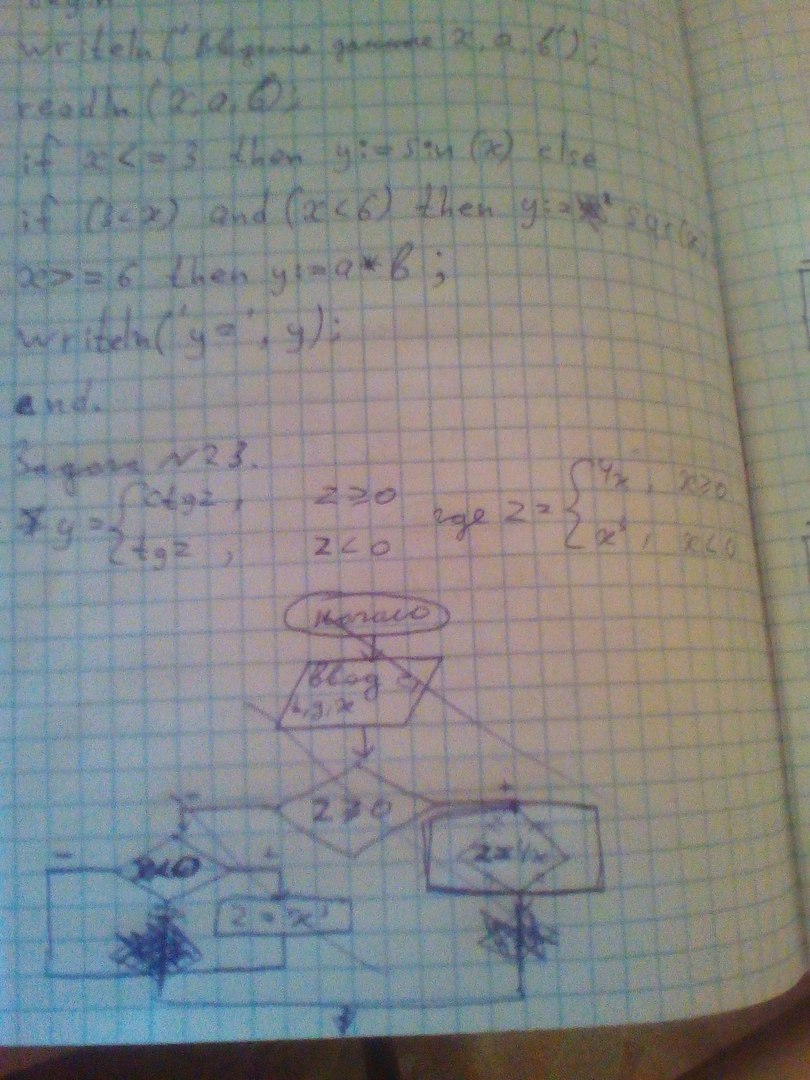 begin
writeln('Введите данные x, a, b');
readln (x, a, b);
if x <= 3 then y:=sin(x) else
if (3<x) and (x<6) then y:= sqr(x)
x>=6 then y:=a*b;
writeln('y=', y);
end.
Задача №23.
y = { ctgz, z≥0 где z = { 4x, x≥0
tgz, z<0 x², x<0
начало
Ввод
z≥0
x<0
z = x²